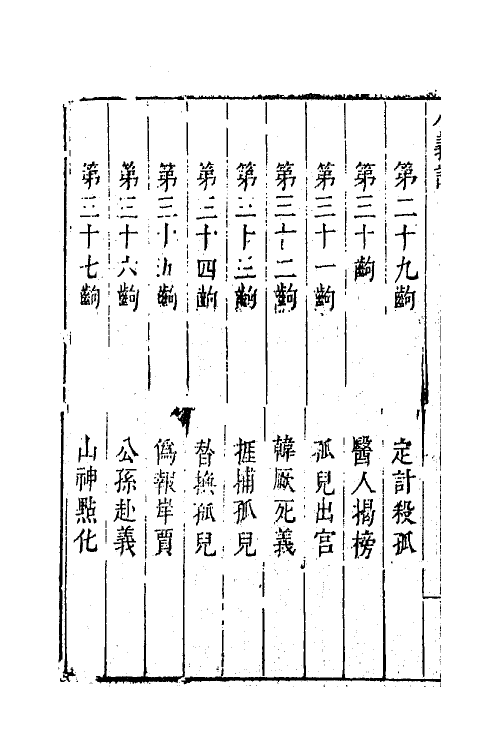 八義記
第二十九齣 定計殺孤
第三十齣 醫人揭榜
第三十一齣 孤兒出宮
第三十二齣 韓厥死義
第三十三齣 捱捕孤兒
第三十四齣 替換孤兒
第三十五齣 僞報岸賈
第三十六齣 公孫赴義
第三十七齣 山神點化